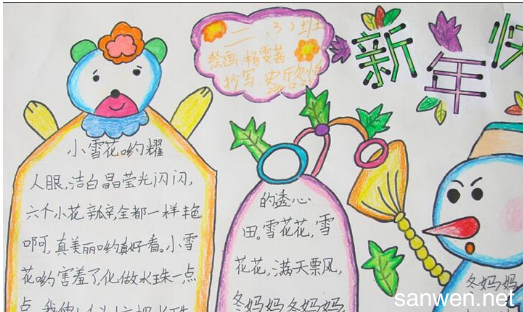 二(3)班
绘画:杨雯茜
抄写
新年快
小雪花哟耀
人眼,洁白晶莹光闪闪,
六个小花瓣,全都一样艳
啊呵,真美丽哟真好看。小雪
花哟害羞了化做水珠一点
点
的透心
田。雪花花,雪
花花,满天票风,
冬妈妈冬妈妈
冬妈妈
sanwen.net